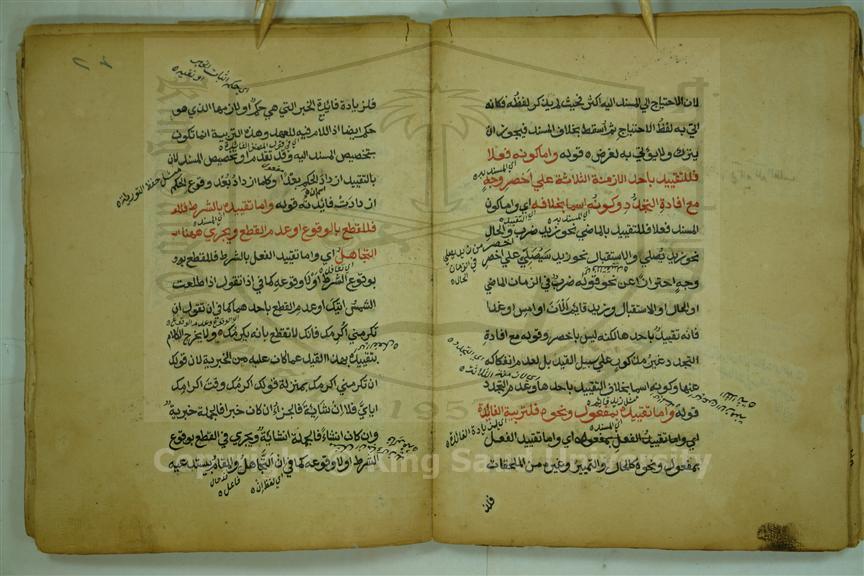 لان الاحتياج الى المسند اليه اكثر بحيث لم يذكر لفظه فكانه
اتي به لفظ الاحتياج ثم اسقط بخلاف المسند فيجوز ان
يترك ولا يؤتى به لغرض قوله واما كونه فعلا
فللتقييد باحد الازمنة الثلاثة علي اخصر وجه
مع افادة التجدد وكونه اسما بخلافه اي واما كون
المسند فعلا فللتقييد بالماضي نحو زيد ضرب والحال
نحو زيد يصلي والاستقبال نحو زيد سيصلي علي اخصر
وجه احترازا عن نحو قوله ضرب في الزمان الماضي
او الحال او الاستقبال وزيد قايم الان او امس او غدا
فانه تقييد باحدها لكنه ليس باخصر وقوله مع افادة
التجدد غير مذكور علي سبيل القيد بل لعدم انفكاكه
عنها وكونه اسما بخلاف التقييد باحدها وعدم التجدد
قوله واما تقييده بمفعول ونحوه فلتربية الفائدة
اي واما تقييد الفعل بمفعوله اي واما تقييد الفعل
بمفعول ونحوه كالحال والتمييز وغيره من الملحقات
فلز
فلزيادة فائدة الخبر التي هي حكم او لازمها الذي هو
حكم ايضا اذ اللام فيه للعهد وهذه التربية انما تكون
بتخصيص المسند اليه وقد تقدم او تخصيص المسند لان
بالتقييد ازداد الحكم بعدا وكلما ازداد بعد وقوع الحكم
ازدادت فائدته قوله واما تقييده بالشرط
فللقطع بالوقوع او عدم القطع ويجري ههنا
التجاهل اي واما تقييد الفعل بالشرط فللقطع
بوقوع الشرط او لا وقوعه كما في اذا تقول اذا طلعت
الشمس اتيتك او عدم القطع باحدهما كما في ان تقول ان
تكرمني اكرمك فانك لا تقطع بانه يكرمك ولا يخرج الكلام
بتقييده بهذا القيد عما كان عليه من الخبرية لان قولك
ان تكرمني اكرمك بمنزلة قولك اكرمك وقت اكرامك
اياي فلا انشائية فالجزاء ان كان خبرا فالجملة خبرية
وان كان انشاء فالجملة انشائية ويجري في القطع بوقوع
الشرط او لا وقوعه كما في ان التجاهل والمقام يستدعيه
Copyright © King Saud University